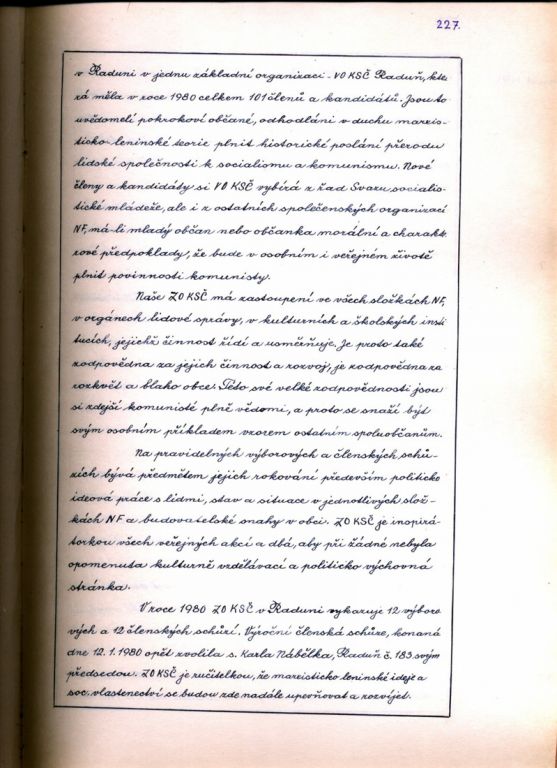 227.
v Raduni v jednu základní organizaci - VO KSČ Raduň, kte
rá měla v roce 1980 celkem 101 členů a kandidátů. Jsou to
uvědomělí pokrokoví občané, odhodláni v duchu marxis-
ticko-leninské teorie plnit historické poslání přerodu
lidské společnosti k socialismu a komunismu. Nové
členy a kandidáty si VO KSČ vybírá z řad Svazu socialis-
tické mládeže, ale i z ostatních společenských organizací
NF, má-li mladý občan nebo občanka morální a charakte
rové předpoklady, že bude v osobním i veřejném životě
plnit povinnosti komunisty.
Naše ZO KSČ má zastoupení ve všech složkách NF,
v orgánech lidové správy, v kulturních a školských insti
tucích, jejichž činnost řídí a usměrňuje. Je proto také
zodpovědna za jejich činnost a rozvoj, je zodpovědna za
rozkvět a blaho obce. Této, své velké zodpovědnosti jsou
si zdejší komunisté plně vědomi, a proto se snaží být
svým osobním příkladem vzorem ostatním spoluobčanům.
Na pravidelných výborových a členských schů-
zích bývá předmětem jejich rokování především politicko
ideová práce s lidmi, stav a situace v jednotlivých slož-
kách NF a budovatelské snahy v obci. ZO KSČ je inspirá-
torkou všech veřejných akcí a dbá, aby při žádné nebyla
opomenuta kulturně vzdělávací a politicko výchovná
stránka.
V roce 1980 ZO KSČ v Raduni vykazuje 12 výboro
vých a 12 členských schůzí. Výroční členská schůze, konaná
dne 12. 1. 1980 opět zvolila s. Karla Nábělka, Raduň č. 183 svým
předsedou. ZO KSČ je ručitelkou, že marxisticko leninské ideje a
soc. vlastenectví se budou zde nadále upevňovat a rozvíjet.